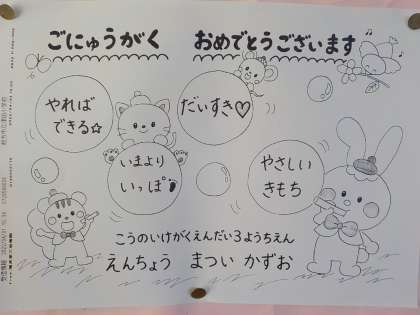 ごにゅうがく おめでとうございます
やれば
できる☆
だいすき♡
いまより
いっぽ
やさしい
きもち
こうのいけがくえんだい3ようちえん
えんちょう まつい かずお